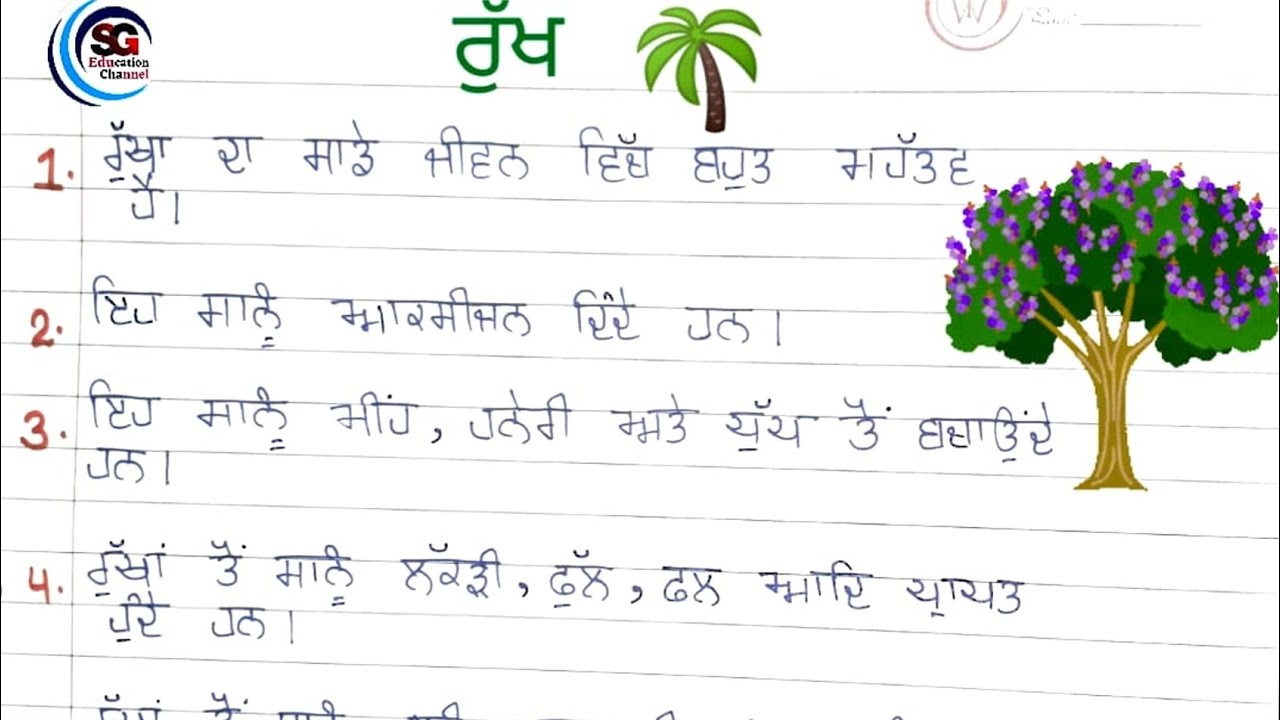 SG
Education
Channel
ਰੁੱਖ
1. ਰੁੱਖਾ ਦਾ ਸਾਡੇ ਜੀਵਨ ਵਿੱਚ ਬਹੁਤ ਮਹੱਤਵ
ਹੈ।
2. ਇਹ ਸਾਨੂੰ ਆਕਸੀਜਨ ਦਿੰਦੇ ਹਨ।
3. ਇਹ ਸਾਨੂੰ ਮੀਂਹ, ਹਨੇਰੀ ਅਤੇ ਧੁੱਪ ਤੋਂ ਬਚਾਉਂਦੇ
ਹਨ।
4. ਰੁੱਖਾਂ ਤੋਂ ਸਾਨੂੰ ਲੱਕੜੀ, ਫੁੱਲ, ਫਲ ਆਦਿ ਪ੍ਰਾਪਤ
ਹੁੰਦੇ ਹਨ।